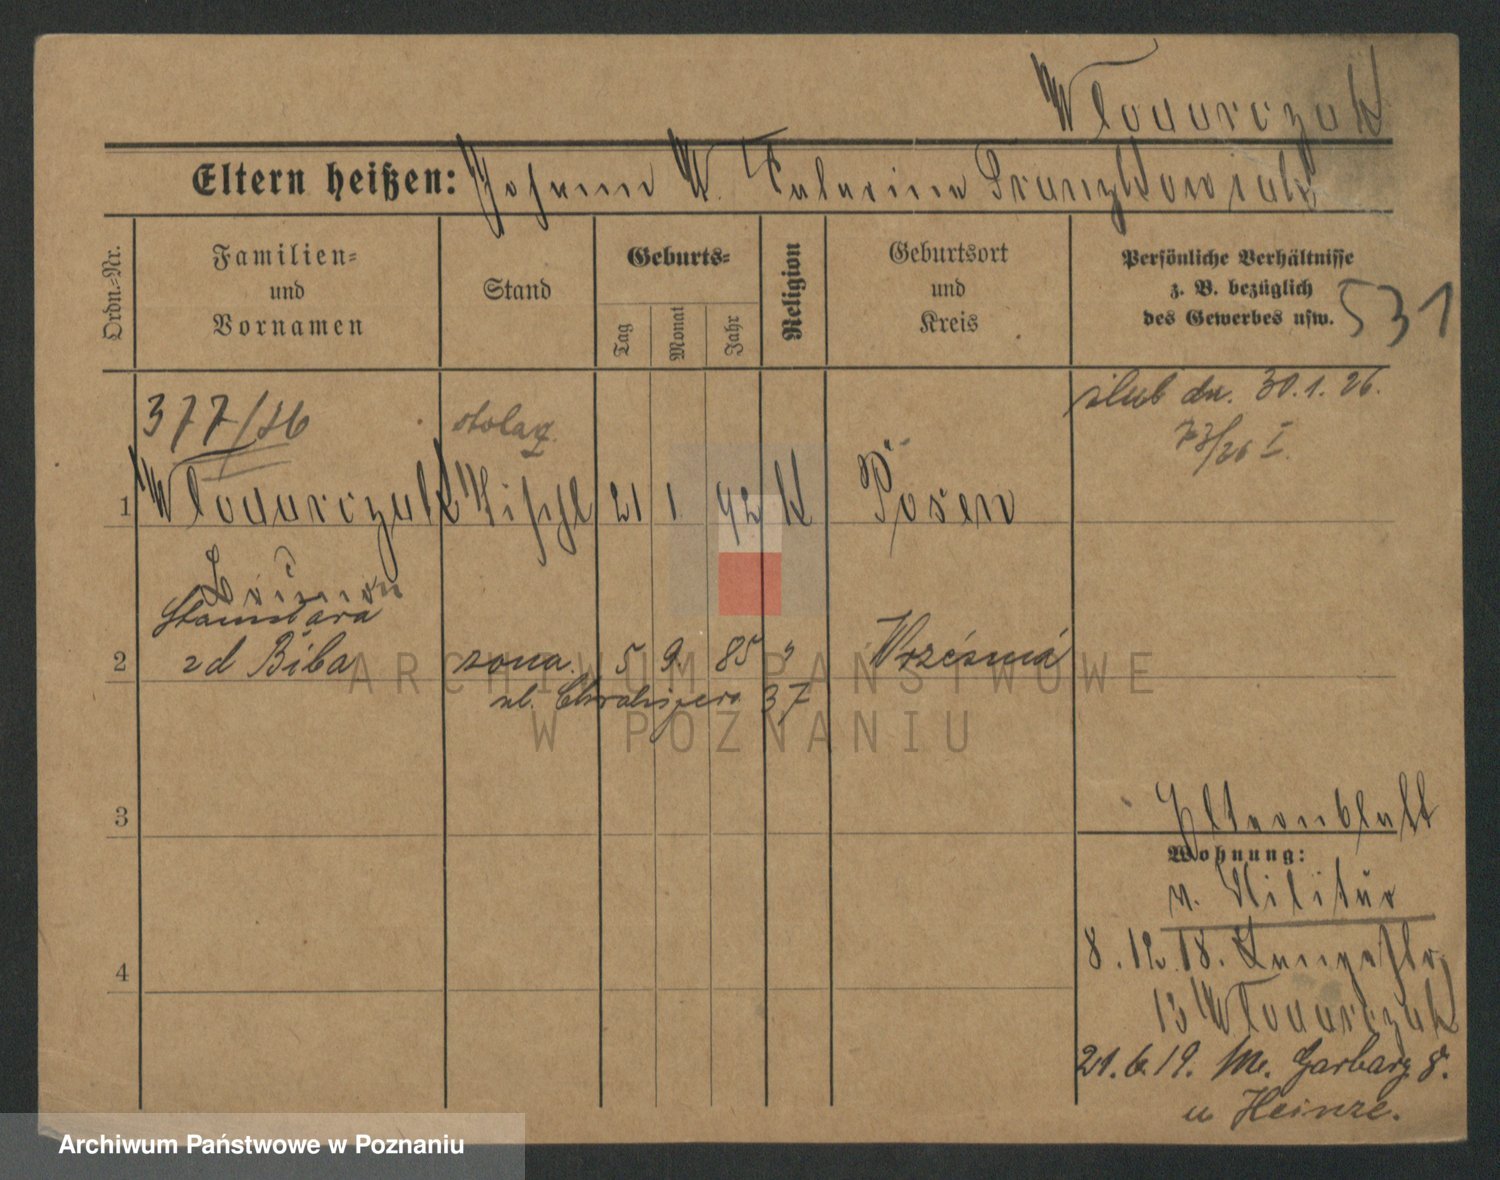 Włodarczak
Eltern heißen: Johann W. Katarina Franzkowiak
Ordn.-Nr.
Familien-
und
Vornamen
Stand
Geburts-
Tag
Monat
Jahr
Religion
Geburtsort
und
Kreis
Persönliche Verhältnisse
z. B. bezüglich
des Gewerbes usw.
531
377/26
stolarz.
ślub dn. 30.1.26.
73/26 I.
1 Włodarczak Tischl 21 1 92 K Posen
Stanisława
2 zd Biba żona. 5 9. 85 Września
ul. 37
3
Elternblatt
Wohnung:
v. Militär
4
8.12.18. Langestr.
13 Włodarczak
21.6.19. Garbary 8.
u Heinze.
ARCHIWUM PAŃSTWOWE
W POZNANIU
Archiwum Państwowe w Poznaniu